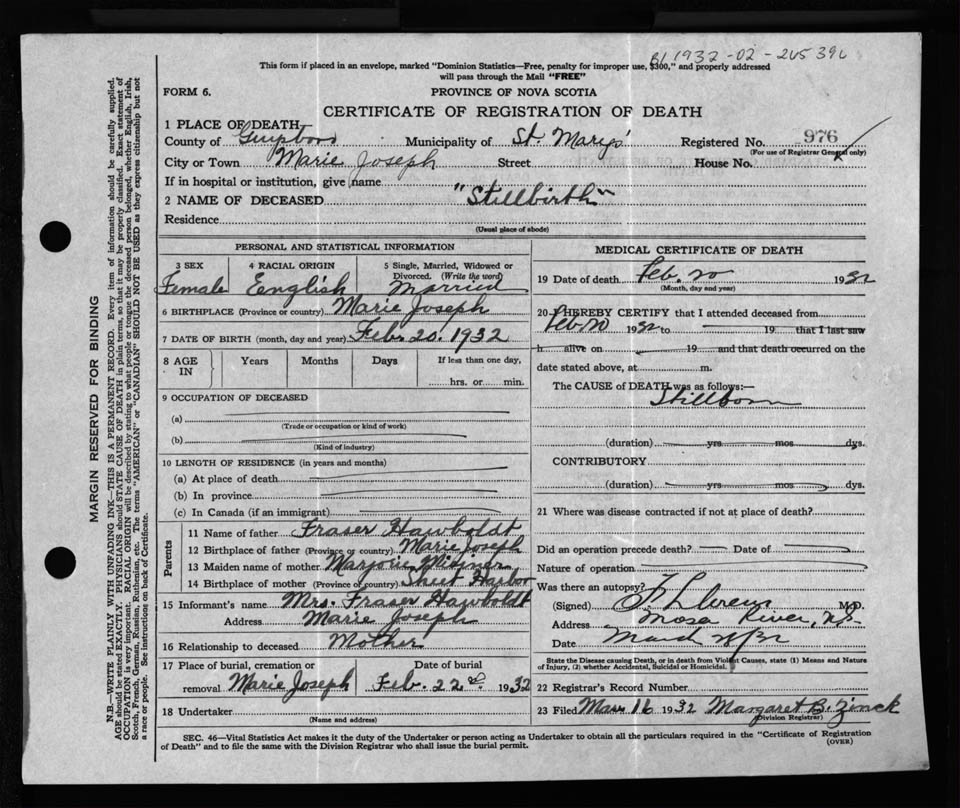 1932-02-265396
This form if placed in an envelope, marked "Dominion Statistics—Free, penalty for improper use, $300," and properly addressed
will pass through the Mail "FREE"
FORM 6.
PROVINCE OF NOVA SCOTIA
CERTIFICATE OF REGISTRATION OF DEATH
1 PLACE OF DEATH—
County of Guysboro Municipality of St. Mary's Registered No. 976
(For use of Registrar General only)
City or Town Marie Joseph Street House No.
If in hospital or institution, give name
2 NAME OF DECEASED "Stillbirth"
Residence
(Usual place of abode)
PERSONAL AND STATISTICAL INFORMATION
3 SEX 4 RACIAL ORIGIN 5 Single, Married, Widowed or
Divorced. (Write the word)
Female English Married
6 BIRTHPLACE (Province or country) Marie Joseph
7 DATE OF BIRTH (month, day and year) Feb. 20. 1932
8 AGE IN Years Months Days If less than one day,
hrs. or min.
9 OCCUPATION OF DECEASED
(a)
(Trade or occupation or kind of work)
(b)
(Kind of industry)
10 LENGTH OF RESIDENCE (in years and months)
(a) At place of death
(b) In province
(c) In Canada (if an immigrant)
Parents
11 Name of father Fraser Hawboldt
12 Birthplace of father (Province or country) Marie Joseph
13 Maiden name of mother Marjorie
14 Birthplace of mother (Province or country) Sheet Harbor
15 Informant's name Mrs. Fraser Hawboldt
Address Marie Joseph
16 Relationship to deceased Mother
17 Place of burial, cremation or Date of burial
removal Marie Joseph Feb. 22nd 1932
18 Undertaker
(Name and address)
MEDICAL CERTIFICATE OF DEATH
19 Date of death Feb. 20 1932
(Month, day and year)
20 I HEREBY CERTIFY that I attended deceased from
Feb 20 1932 to 19 that I last saw
h alive on 19 and that death occurred on the
date stated above, at m.
The CAUSE of DEATH was as follows:—
Stillborn
(duration) yrs mos dys.
CONTRIBUTORY
(duration) yrs mos dys.
21 Where was disease contracted if not at place of death?
Did an operation precede death? Date of
Nature of operation
Was there an autopsy?
(Signed) M.D.
Address River, N.S.
Date March 28/32
State the Disease causing Death, or in death from Violent Causes, state (1) Means and Nature
of Injury, (2) whether Accidental, Suicidal or Homicidal.
22 Registrar's Record Number
23 Filed Mar 16 1932 Margaret B. Zinck
Division Registrar)
SEC. 46—Vital Statistics Act makes it the duty of the Undertaker or person acting as Undertaker to obtain all the particulars required in the "Certificate of Registration
of Death" and to file the same with the Division Registrar who shall issue the burial permit.
(OVER)
MARGIN RESERVED FOR BINDING
N.B.—WRITE PLAINLY WITH UNFADING INK—THIS IS A PERMANENT RECORD. Every item of information should be carefully supplied.
AGE should be stated EXACTLY. PHYSICIANS should STATE CAUSE OF DEATH in plain terms, so that it may be properly classified. Exact statement of
OCCUPATION is very important. RACIAL ORIGIN will be described by stating to what people or tongue the deceased person belonged, whether English, Irish,
Scotch, French, German, Russian, Ruthenian, etc. The terms "AMERICAN" or "CANADIAN" SHOULD NOT BE USED as they express citizenship but not
a race or people. See instructions on back of Certificate.